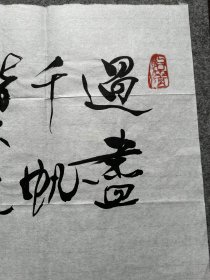 過盡
千帆
皆